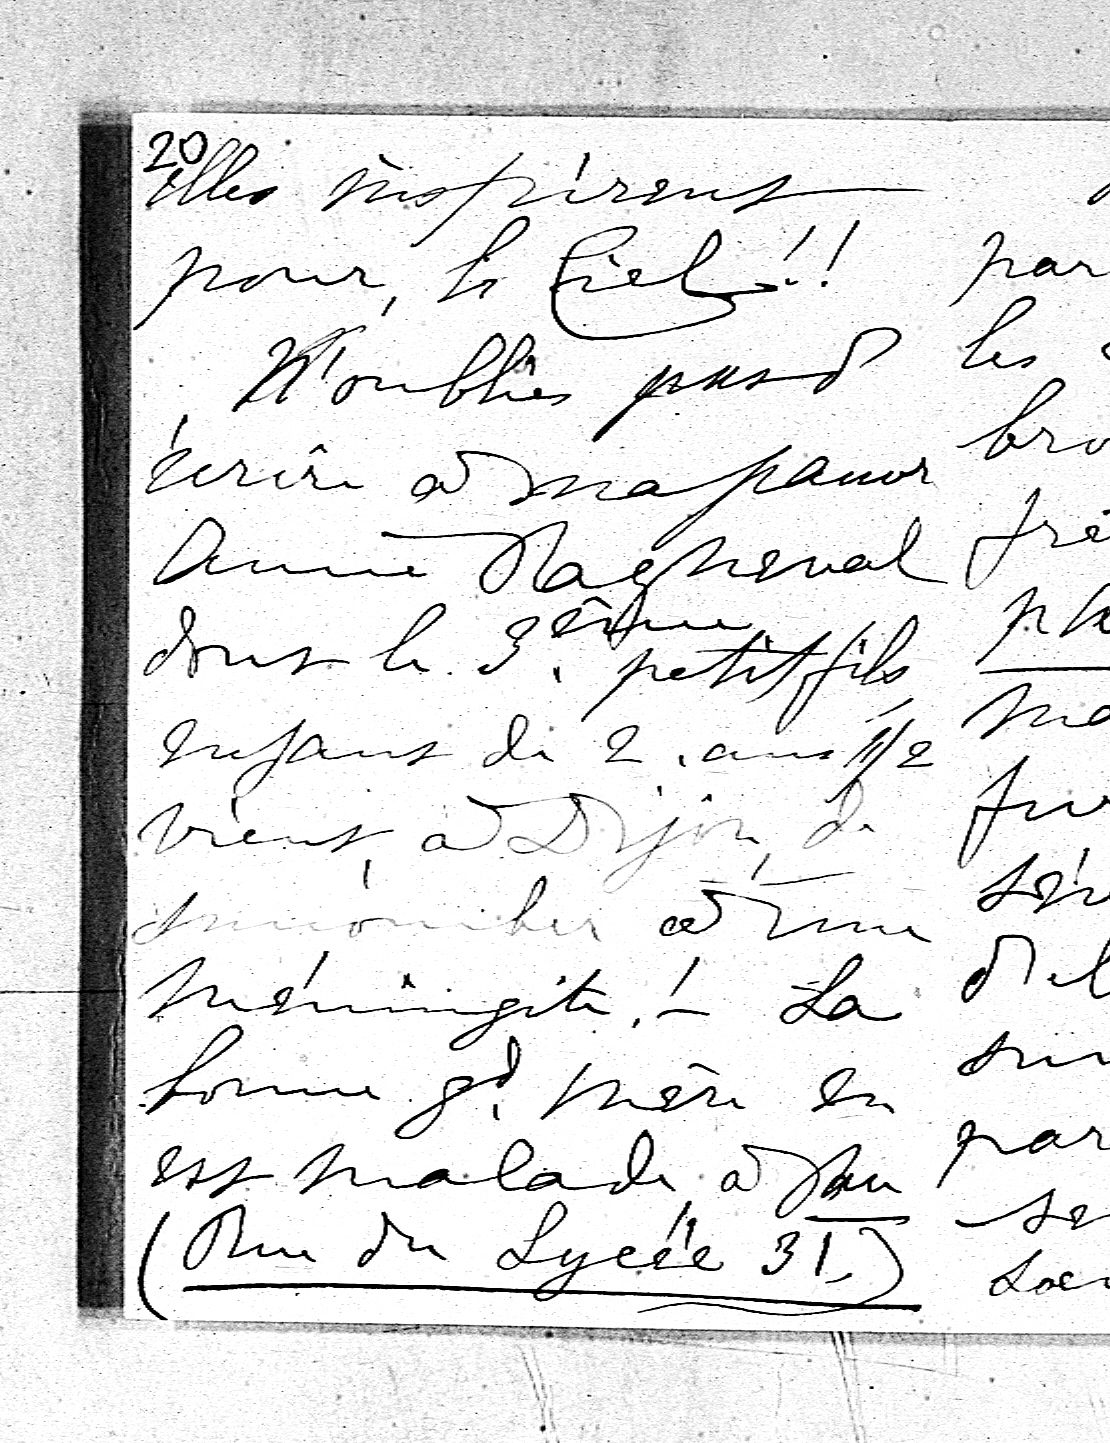 20
elles inspirent
pour, le Ciel!!
N'oublies pas d'
écrire à ma pauvre
Annie Ragneval
dont le 3ème petit fils,
enfant de 2. ans 1/2
vient, à Dijon, de
succomber à une
méningite! — La
bonne gd. mère en
est malade, à Pau
(Rue du Lycée 31.)
par
les
bro
frè
plu
ma
fur
sév
d'el
sur
par
se
soeu